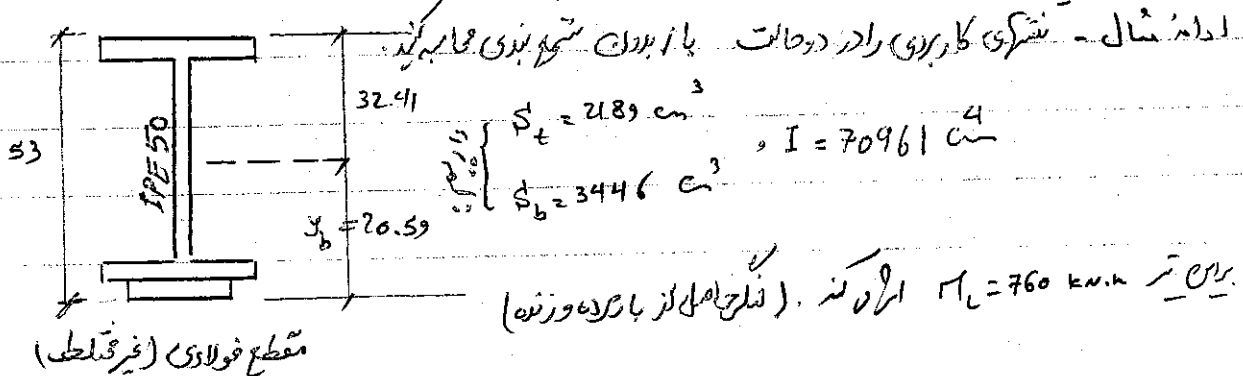 ادامه مثال - تنشهای کاربردی را در دو حالت با و بدون شمع بندی محاسبه کنید.
53
IPE 50
32.41
y_b = 20.59
داریم
S_t = 2189 cm³ , I = 70961 cm⁴
S_b = 3446 cm³
براین تیر M_L = 760 kN.m اثر می‌کند. (لنگر حاصل از بار مرده و زنده)
مقطع فولادی (غیر مختلط)